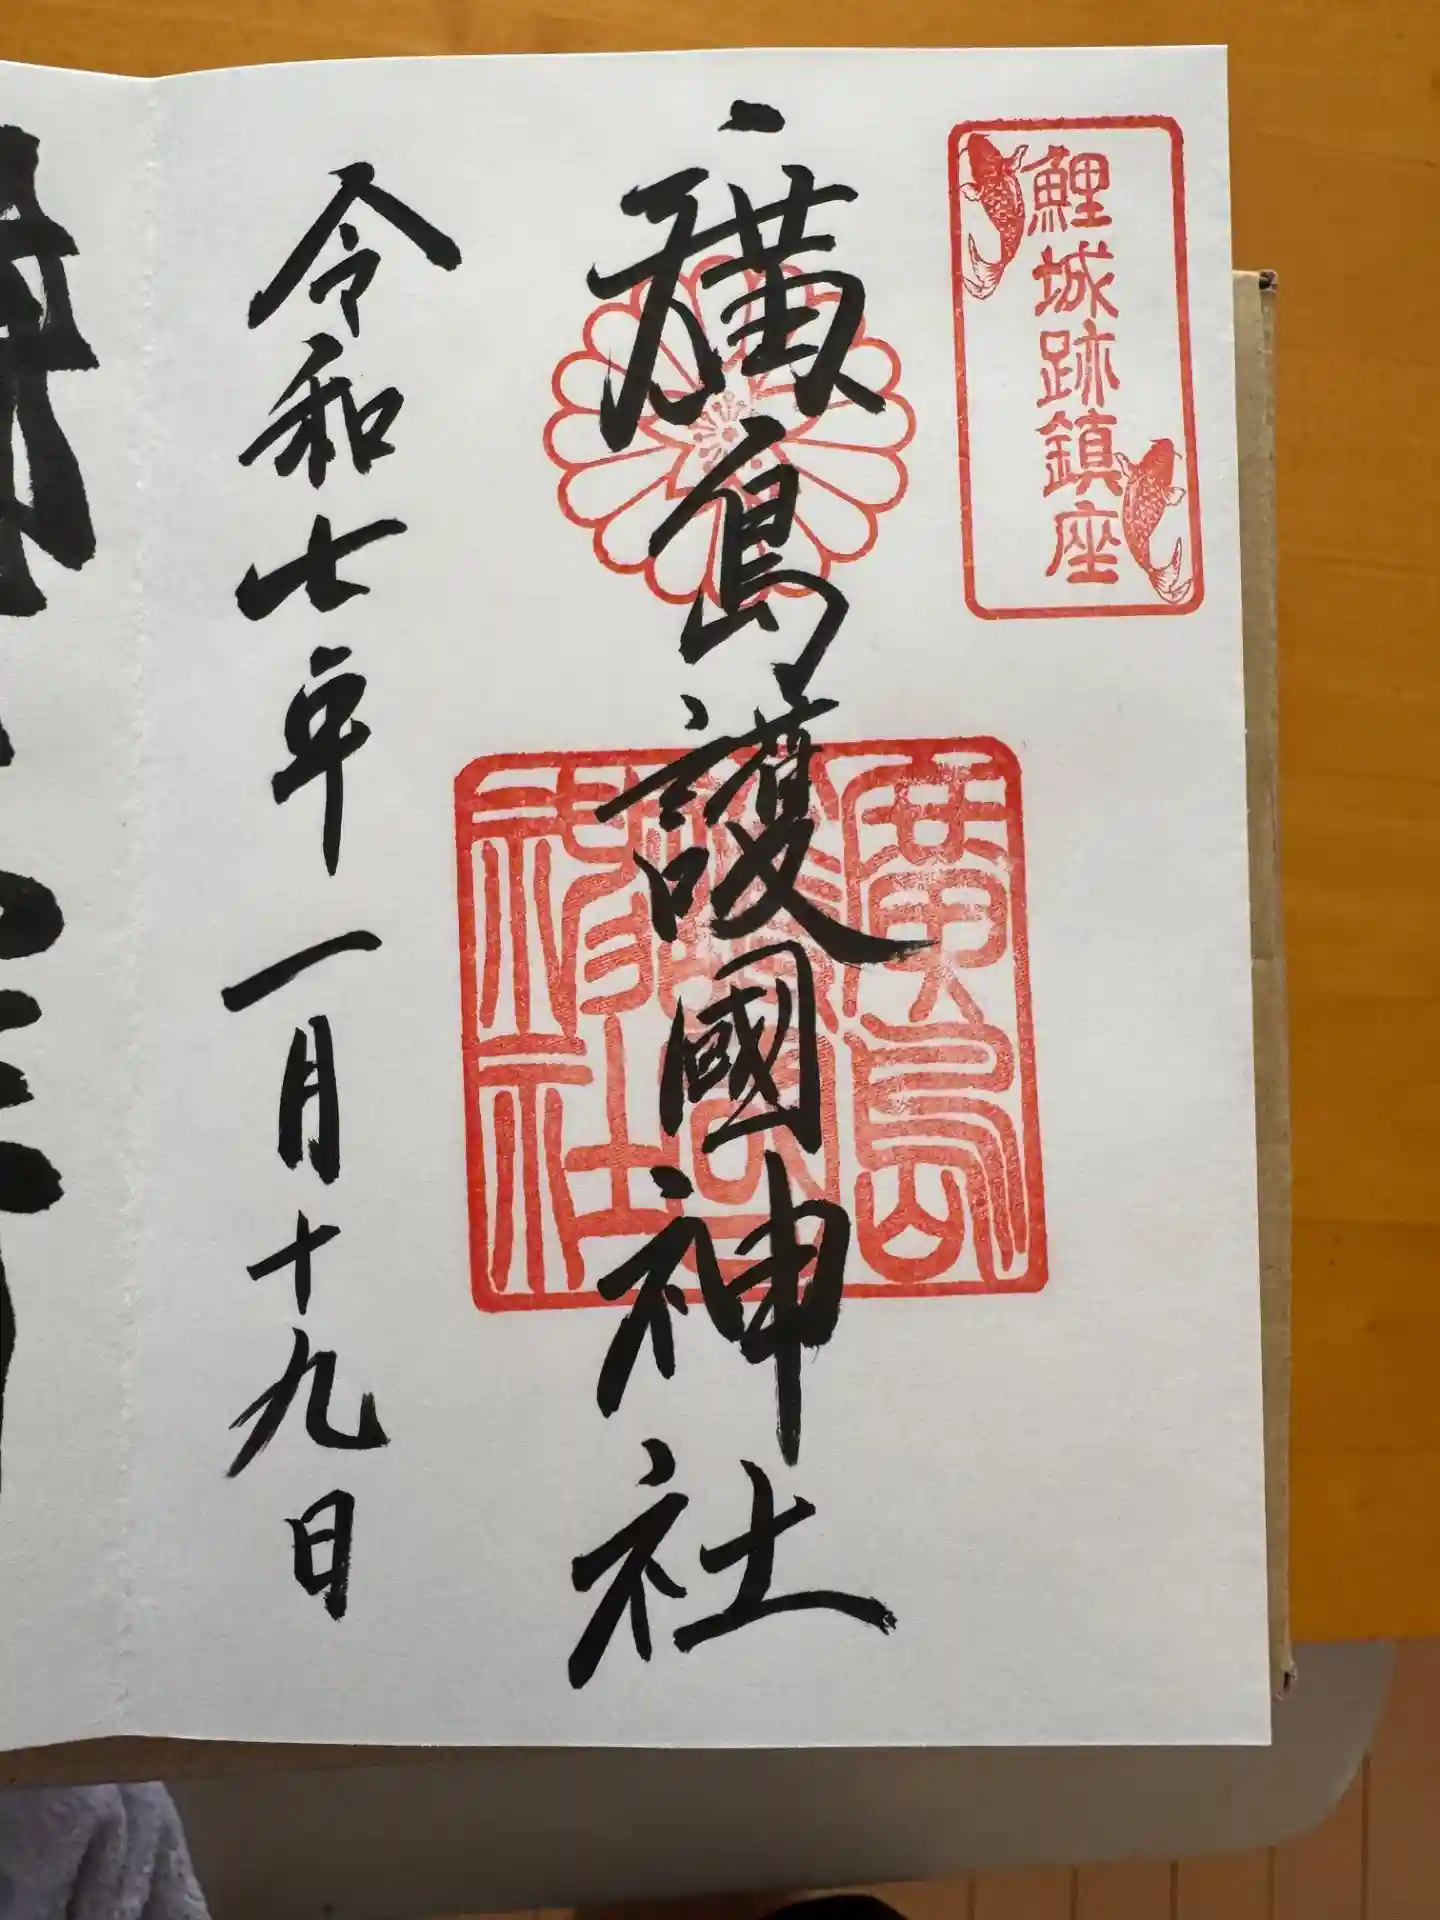 鯉城跡鎮座
廣島護國神社
廣島護國神社
令和七年一月十九日